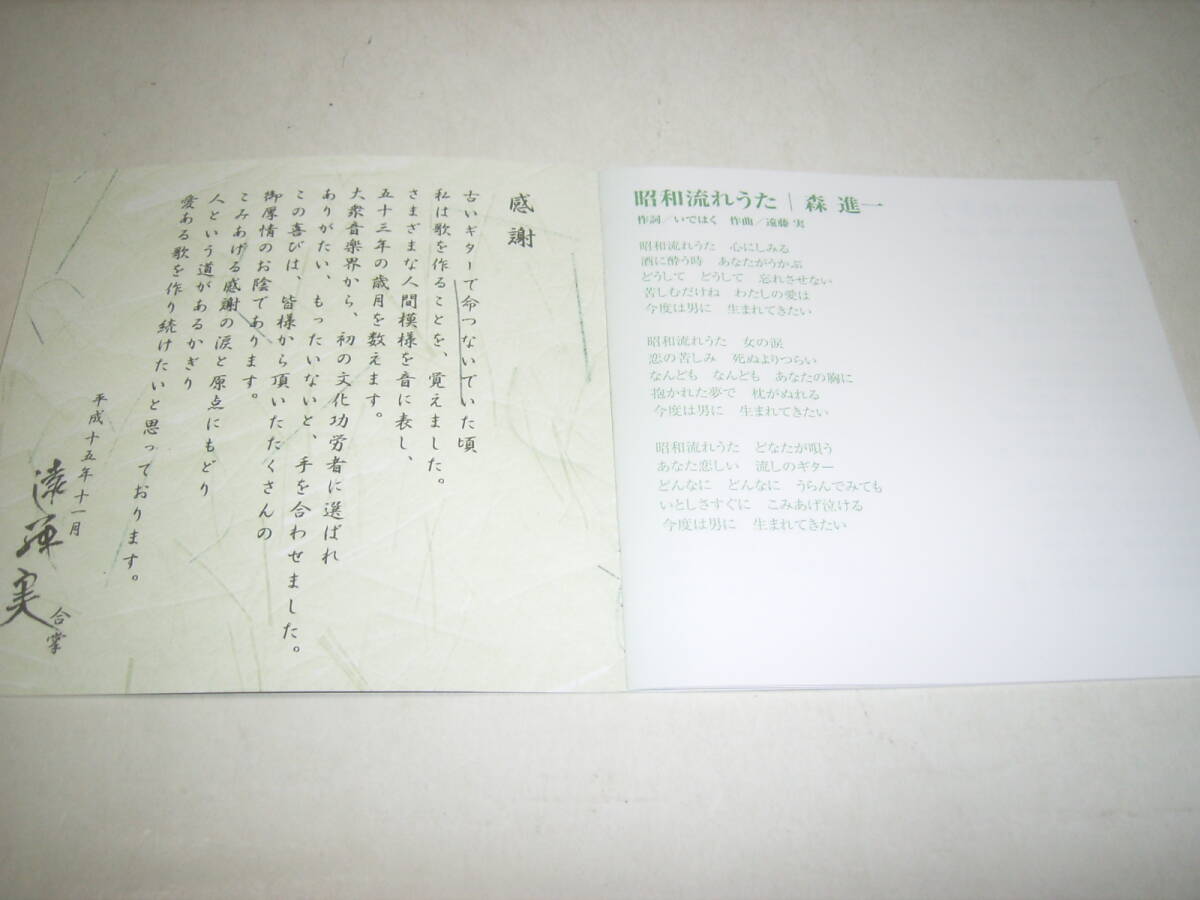 感謝
古いギターで命つないでいた頃
私は歌を作ることを、覚えました。
さまざまな人間模様を音に表し、
五十三年の歳月を数えます。
大衆音楽界から、初の文化功労者に選ばれ
ありがたい、もったいないと、手を合わせました。
この喜びは、皆様から頂いたたくさんの
御厚情のお陰であります。
こみあげる感謝の涙と原点にもどり
人という道があるかぎり
愛ある歌を作り続けたいと思っております。
平成十五年十一月
遠藤実
合掌
昭和流れうた | 森 進一
作詞/いではく 作曲/遠藤 実
昭和流れうた 心にしみる
酒に酔う時 あなたがうかぶ
どうして どうして 忘れさせない
苦しむだけね わたしの愛は
今度は男に 生まれてきたい
昭和流れうた 女の涙
恋の苦しみ 死ぬよりつらい
なんども なんども あなたの胸に
抱かれた夢で 枕がぬれる
今度は男に 生まれてきたい
昭和流れうた どなたが唄う
あなた恋しい 流しのギター
どんなに どんなに うらんでみても
いとしさすぐに こみあげ泣ける
今度は男に 生まれてきたい